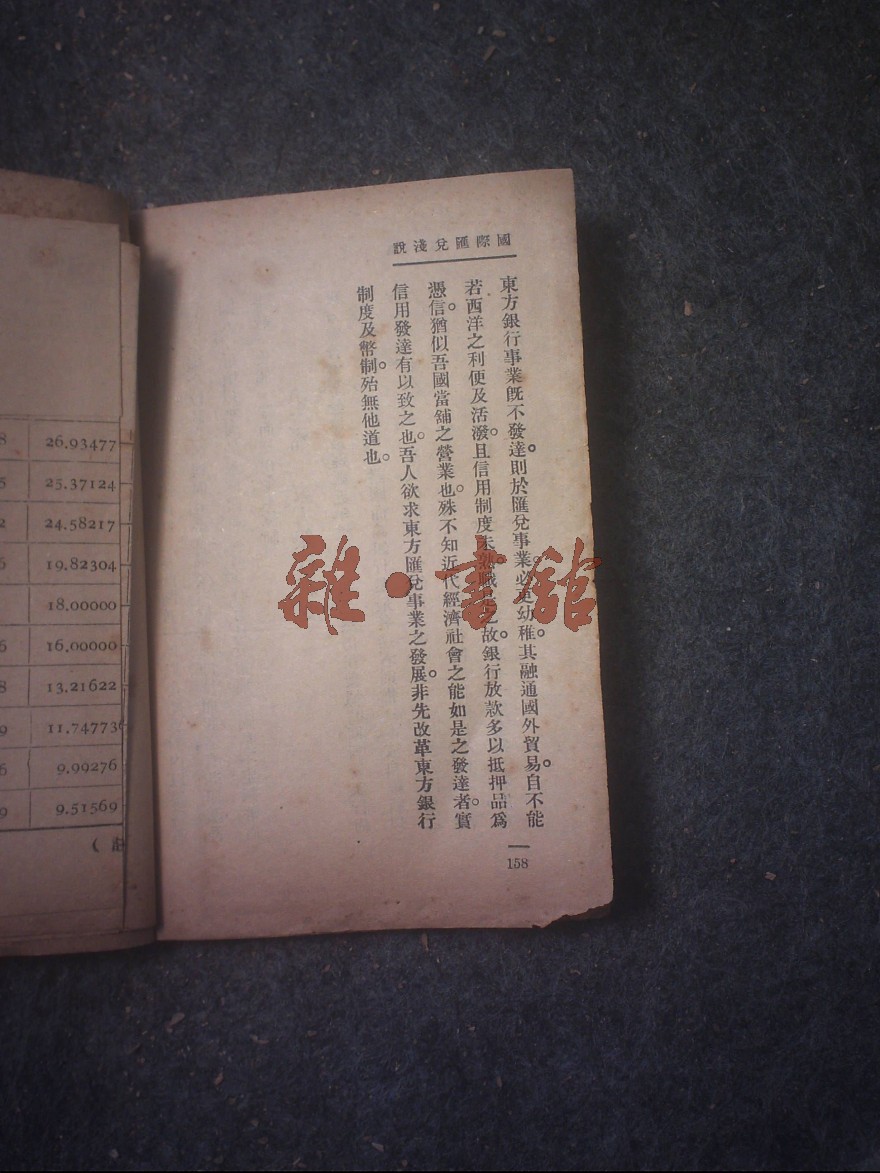 國際匯兌淺說
東方銀行事業旣不發達。則於匯兌事業。必更幼稚。其融通國外貿易。自不能
若西洋之利便及活潑。且信用制度未熟。職是之故。銀行放款多以抵押品爲
憑信。猶似吾國當舖之營業也。殊不知近代經濟社會之能如是之發達者。實
信用發達有以致之也。吾人欲求東方匯兌事業之發展。非先改革東方銀行
制度及幣制。殆無他道也。
158
雜·書館
8 26.93477
5 25.37124
2 24.58217
6 19.82304
18.00000
6 16.00000
8 13.21622
9 11.74773
6 9.99276
9 9.51569